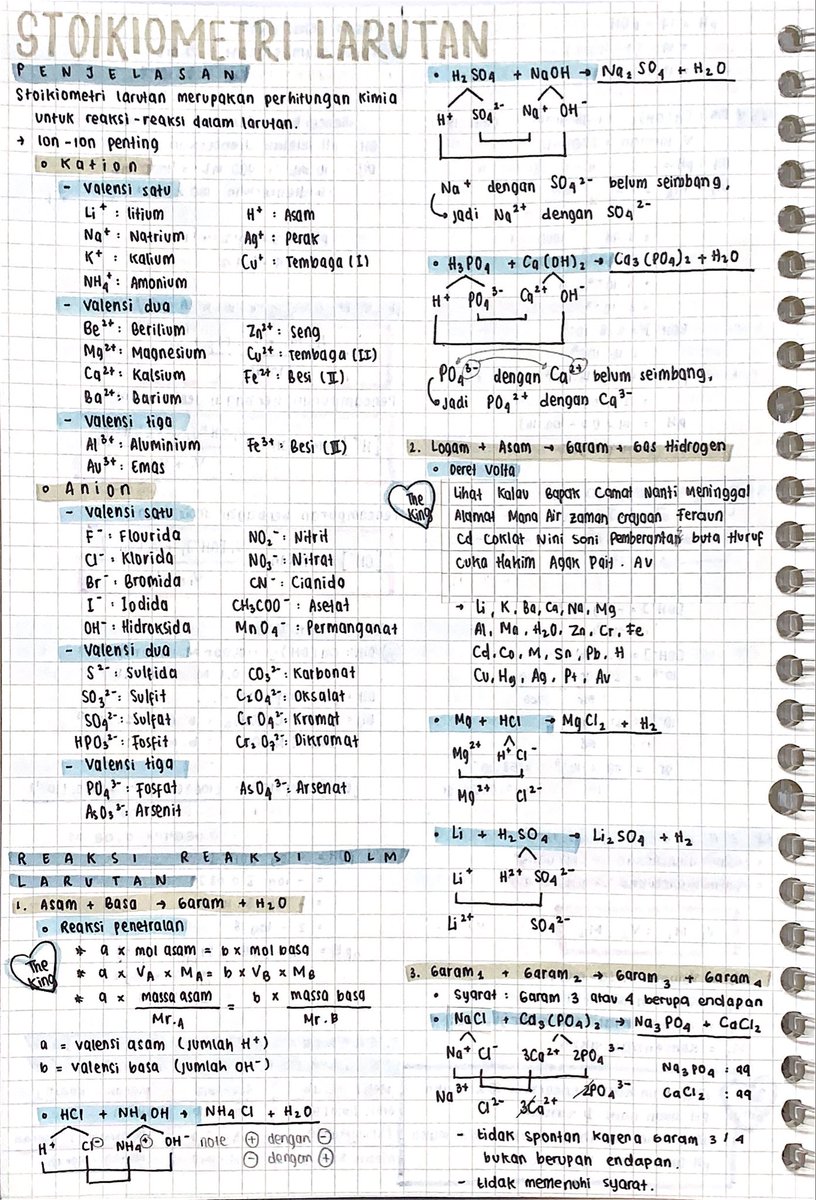 STOIKIOMETRI LARUTAN
PENJELASAN
Stoikiometri larutan merupakan perhitungan kimia
untuk reaksi-reaksi dalam larutan.
→ Ion-ion penting
• Kation
- Valensi satu
Li⁺ : litium H⁺ : Asam
Na⁺ : Natrium Ag⁺ : Perak
K⁺ : Kalium Cu⁺ : Tembaga (I)
NH₄⁺ : Amonium
- Valensi dua
Be²⁺ : Berilium Zn²⁺ : Seng
Mg²⁺ : Magnesium Cu²⁺ : Tembaga (II)
Ca²⁺ : Kalsium Fe²⁺ : Besi (II)
Ba²⁺ : Barium
- Valensi tiga
Al³⁺ : Aluminium Fe³⁺ : Besi (III)
Au³⁺ : Emas
• Anion
- Valensi satu
F⁻ : Flourida NO₂⁻ : Nitrit
Cl⁻ : Klorida NO₃⁻ : Nitrat
Br⁻ : Bromida CN⁻ : Cianida
I⁻ : Iodida CH₃COO⁻ : Asetat
OH⁻ : Hidroksida MnO₄⁻ : Permanganat
- Valensi dua
S²⁻ : Sulfida CO₃²⁻ : Karbonat
SO₃²⁻ : Sulfit C₂O₄²⁻ : Oksalat
SO₄²⁻ : Sulfat CrO₄²⁻ : Kromat
HPO₃²⁻ : Fosfit Cr₂O₇²⁻ : Dikromat
- Valensi tiga
PO₄³⁻ : Fosfat AsO₄³⁻ : Arsenat
AsO₃³⁻ : Arsenit
REAKSI REAKSI DLM
LARUTAN
1. Asam + Basa → Garam + H₂O
• Reaksi penetralan
The King
* a × mol asam = b × mol basa
* a × V_A × M_A = b × V_B × M_B
* a × massa asam / Mr.A = b × massa basa / Mr.B
a = valensi asam (jumlah H⁺)
b = valensi basa (jumlah OH⁻)
• HCl + NH₄OH → NH₄Cl + H₂O
H⁺ Cl⁻ NH₄⁺ OH⁻ note ⊕ dengan ⊖
⊖ dengan ⊕
• H₂SO₄ + NaOH → Na₂SO₄ + H₂O
H⁺ SO₄²⁻ Na⁺ OH⁻
Na⁺ dengan SO₄²⁻ belum seimbang,
jadi Na²⁺ dengan SO₄²⁻
• H₃PO₄ + Ca(OH)₂ → Ca₃(PO₄)₂ + H₂O
H⁺ PO₄³⁻ Ca²⁺ OH⁻
PO₄³⁻ dengan Ca²⁺ belum seimbang,
jadi PO₄²⁺ dengan Ca³⁻
2. Logam + Asam → Garam + Gas Hidrogen
• Deret Volta
The King
Lihat Kalau Bapak Camat Nanti Meninggal
Alamat Mana Air zaman crajaan Feraun
Cd Coklat Nini Soni Pemberantan buta Huruf
Cuka Hakim Agak Pait . Au
→ Li, K, Ba, Ca, Na, Mg
Al, Ma, H₂O, Zn, Cr, Fe
Cd, Co, M, Sn, Pb, H
Cu, Hg, Ag, Pt, Au
• Mg + HCl → MgCl₂ + H₂
Mg²⁺ H⁺ Cl⁻
Mg²⁺ Cl²⁻
• Li + H₂SO₄ → Li₂SO₄ + H₂
Li⁺ H²⁺ SO₄²⁻
Li²⁺ SO₄²⁻
3. Garam₁ + Garam₂ → Garam₃ + Garam₄
• Syarat : Garam 3 atau 4 berupa endapan
• NaCl + Ca₃(PO₄)₂ → Na₃PO₄ + CaCl₂
Na⁺ Cl⁻ 3Ca²⁺ 2PO₄³⁻ Na₃PO₄ : aq
Na³⁺ Cl²⁻ 3Ca²⁺ 2PO₄³⁻ CaCl₂ : aq
- tidak spontan karena garam 3/4
bukan berupan endapan.
- tidak memenuhi syarat.